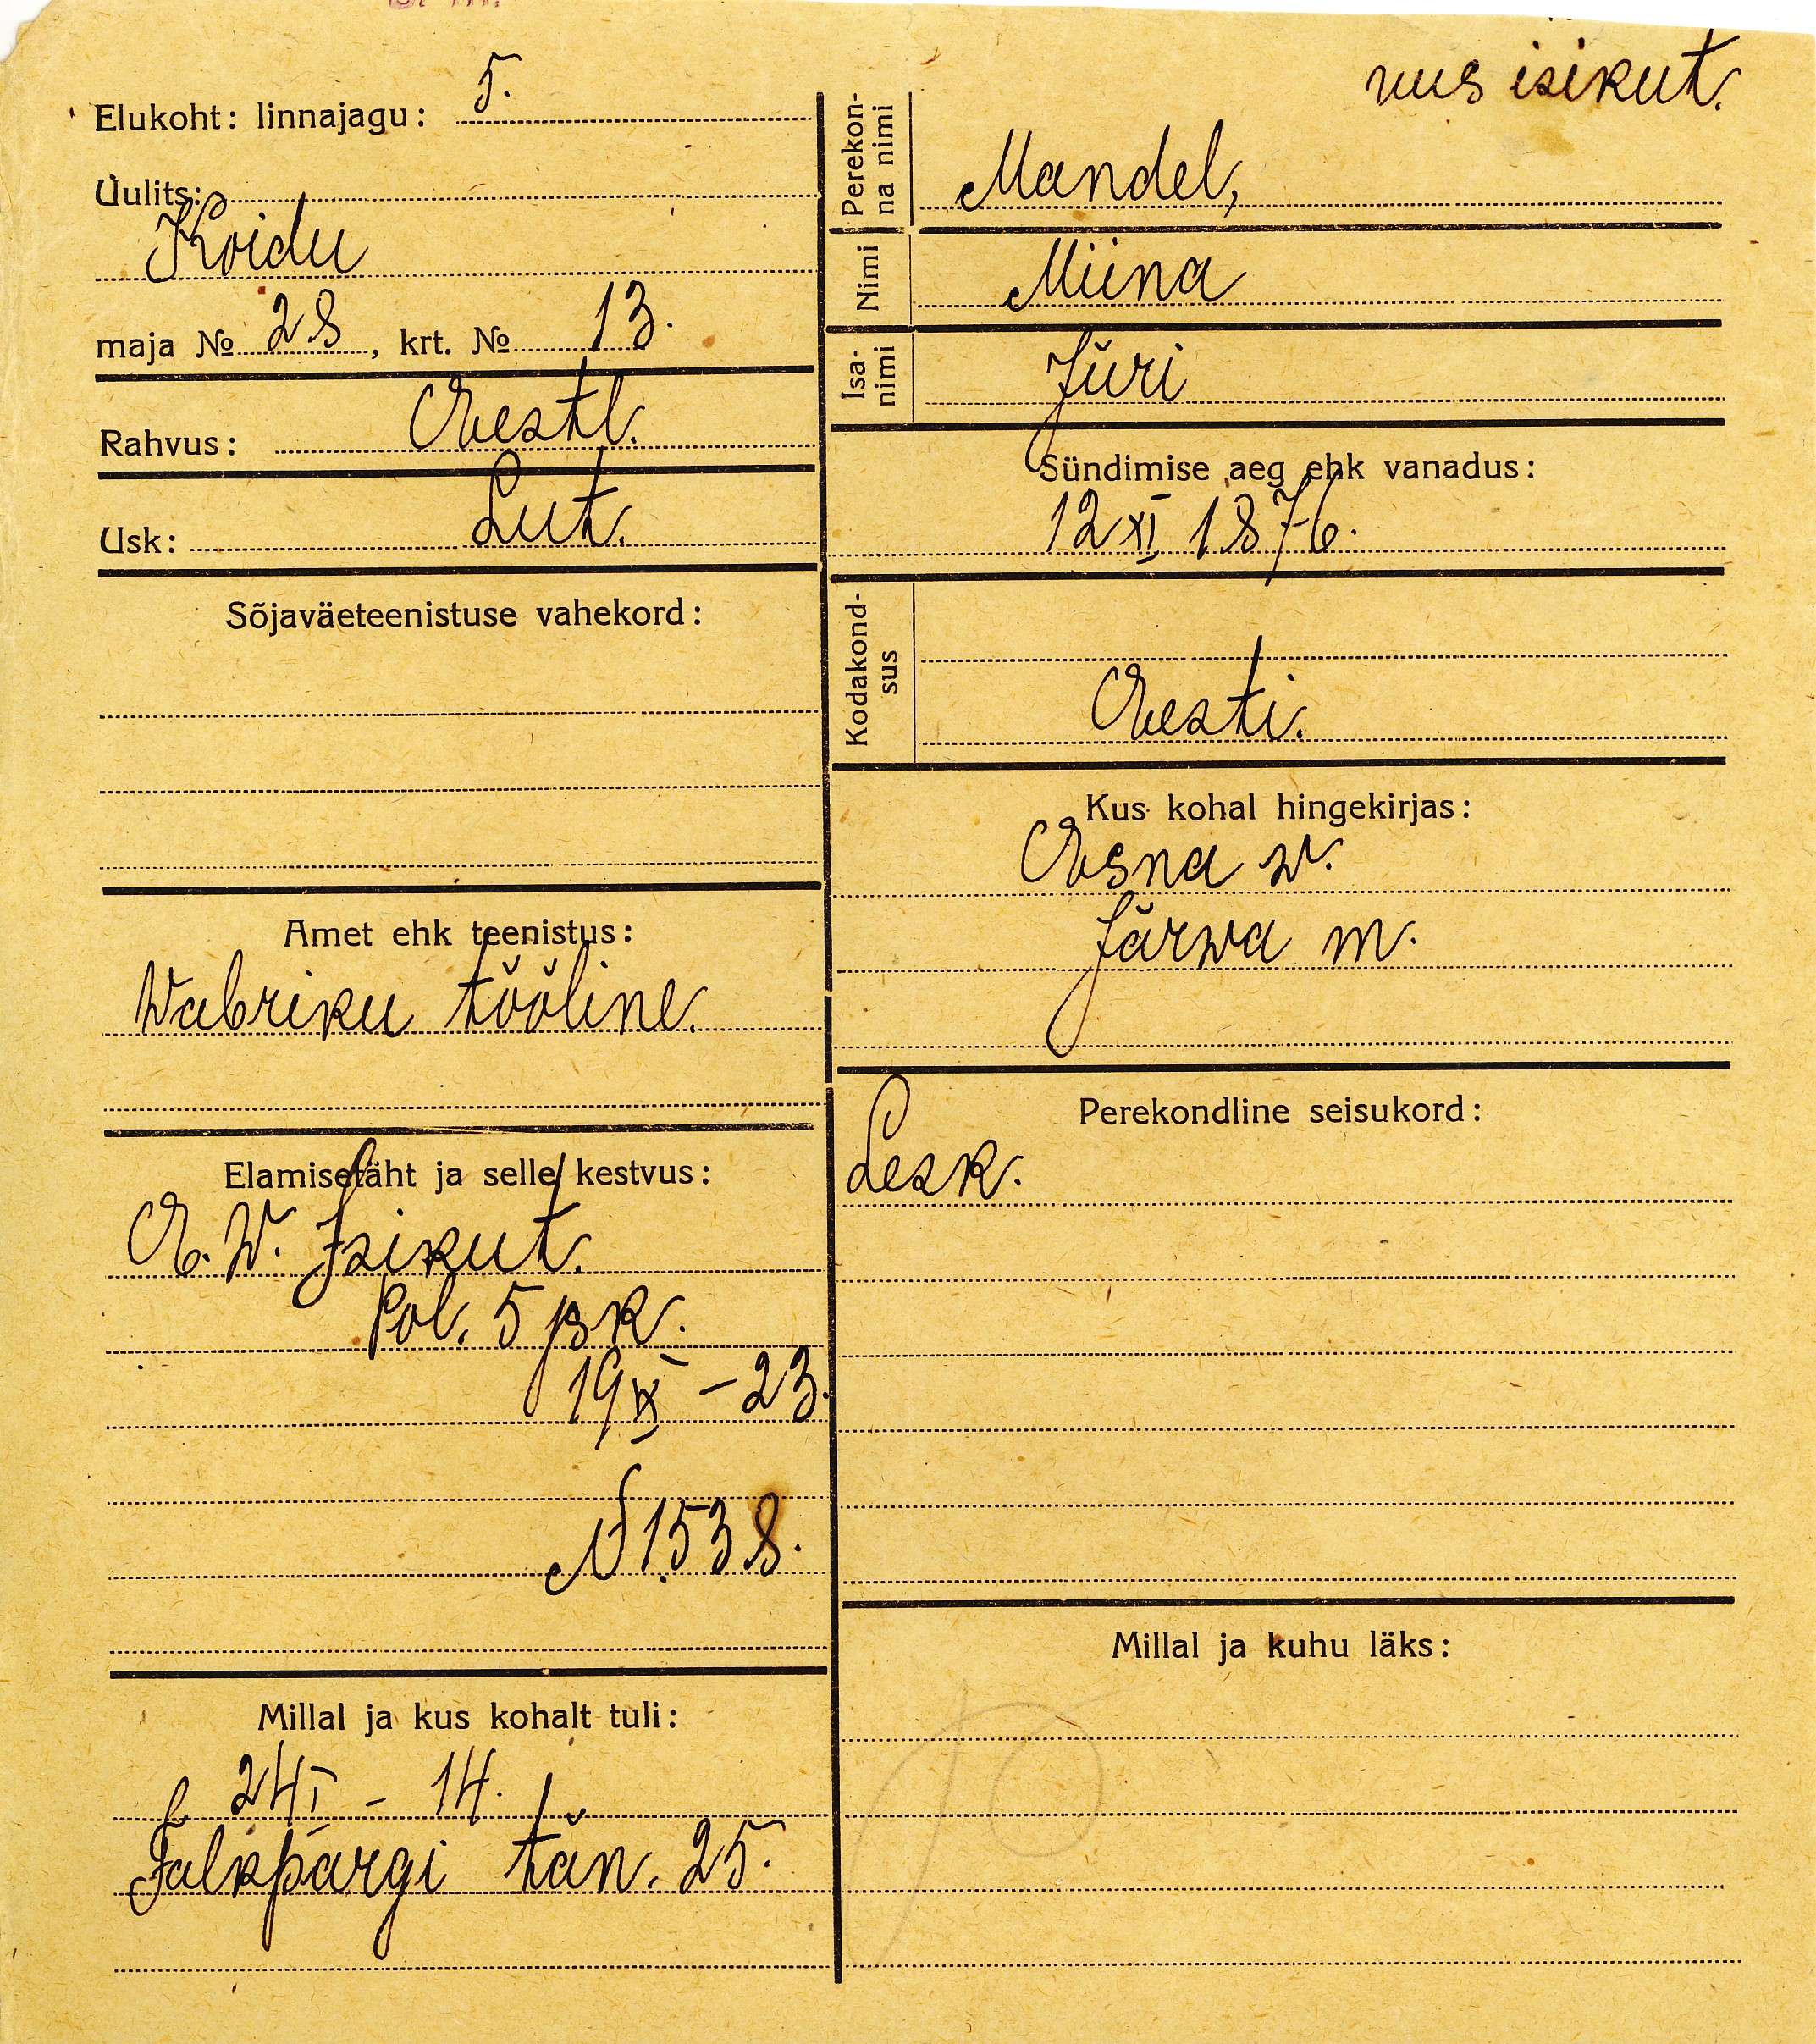 Elukoht: linnajagu: 5.
Uulits:
Koidu
maja № 28, krt. № 13.
Rahvus: Eestl.
Usk: Lut.
Sõjaväeteenistuse vahekord:
Amet ehk teenistus:
Wabriku tööline.
Elamisetäht ja selle kestvus:
E. W. Isikut.
Pol. 5 jsk.
19 IX – 23.
N 1538.
Millal ja kus kohalt tuli:
24 I – 14.
Falkpargi tän. 25.
uus isikut.
Perekonna nimi
Mandel,
Nimi
Miina
Isanimi
Jüri
Sündimise aeg ehk vanadus:
12 XI 1876.
Kodakondsus
Eesti.
Kus kohal hingekirjas:
Esna w.
Järwa m.
Perekondline seisukord:
Lesk.
Millal ja kuhu läks: